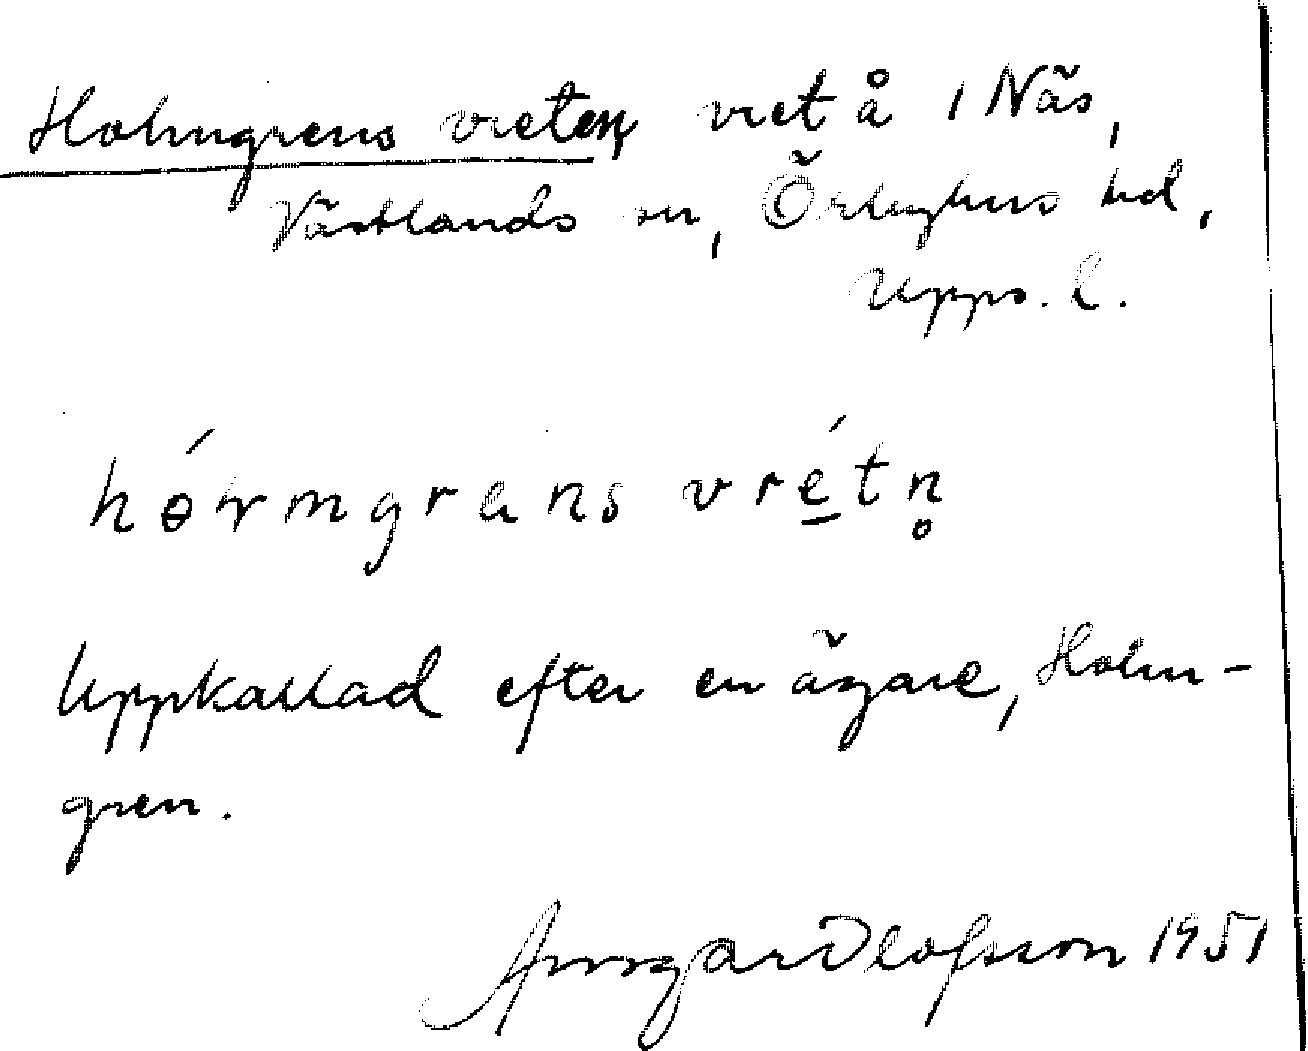 Holmgrens vreten vret å 1 Näs,
Västlands sn, Örbyhus hd,
Upps. l.
hɵ́rmgrens vrétn̥
Uppkallad efter en ägare, Holm-
gren.
Ansgar Olofsson 1951